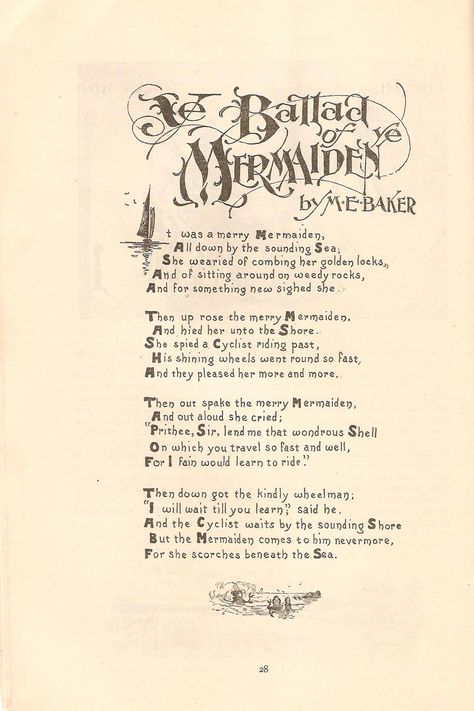 Ye Ballad
of ye
MERMAIDEN
by M·E·BAKER
It was a merry Mermaiden,
All down by the sounding Sea;
She wearied of combing her golden locks,
And of sitting around on weedy rocks,
And for something new sighed she.
Then up rose the merry Mermaiden,
And hied her unto the Shore.
She spied a Cyclist riding past,
His shining wheels went round so fast,
And they pleased her more and more.
Then out spake the merry Mermaiden,
And out aloud she cried;
"Prithee, Sir, lend me that wondrous Shell
On which you travel so fast and well,
For I fain would learn to ride."
Then down got the kindly wheelman;
"I will wait till you learn," said he.
And the Cyclist waits by the sounding Shore
But the Mermaiden comes to him nevermore,
For she scorches beneath the Sea.
28